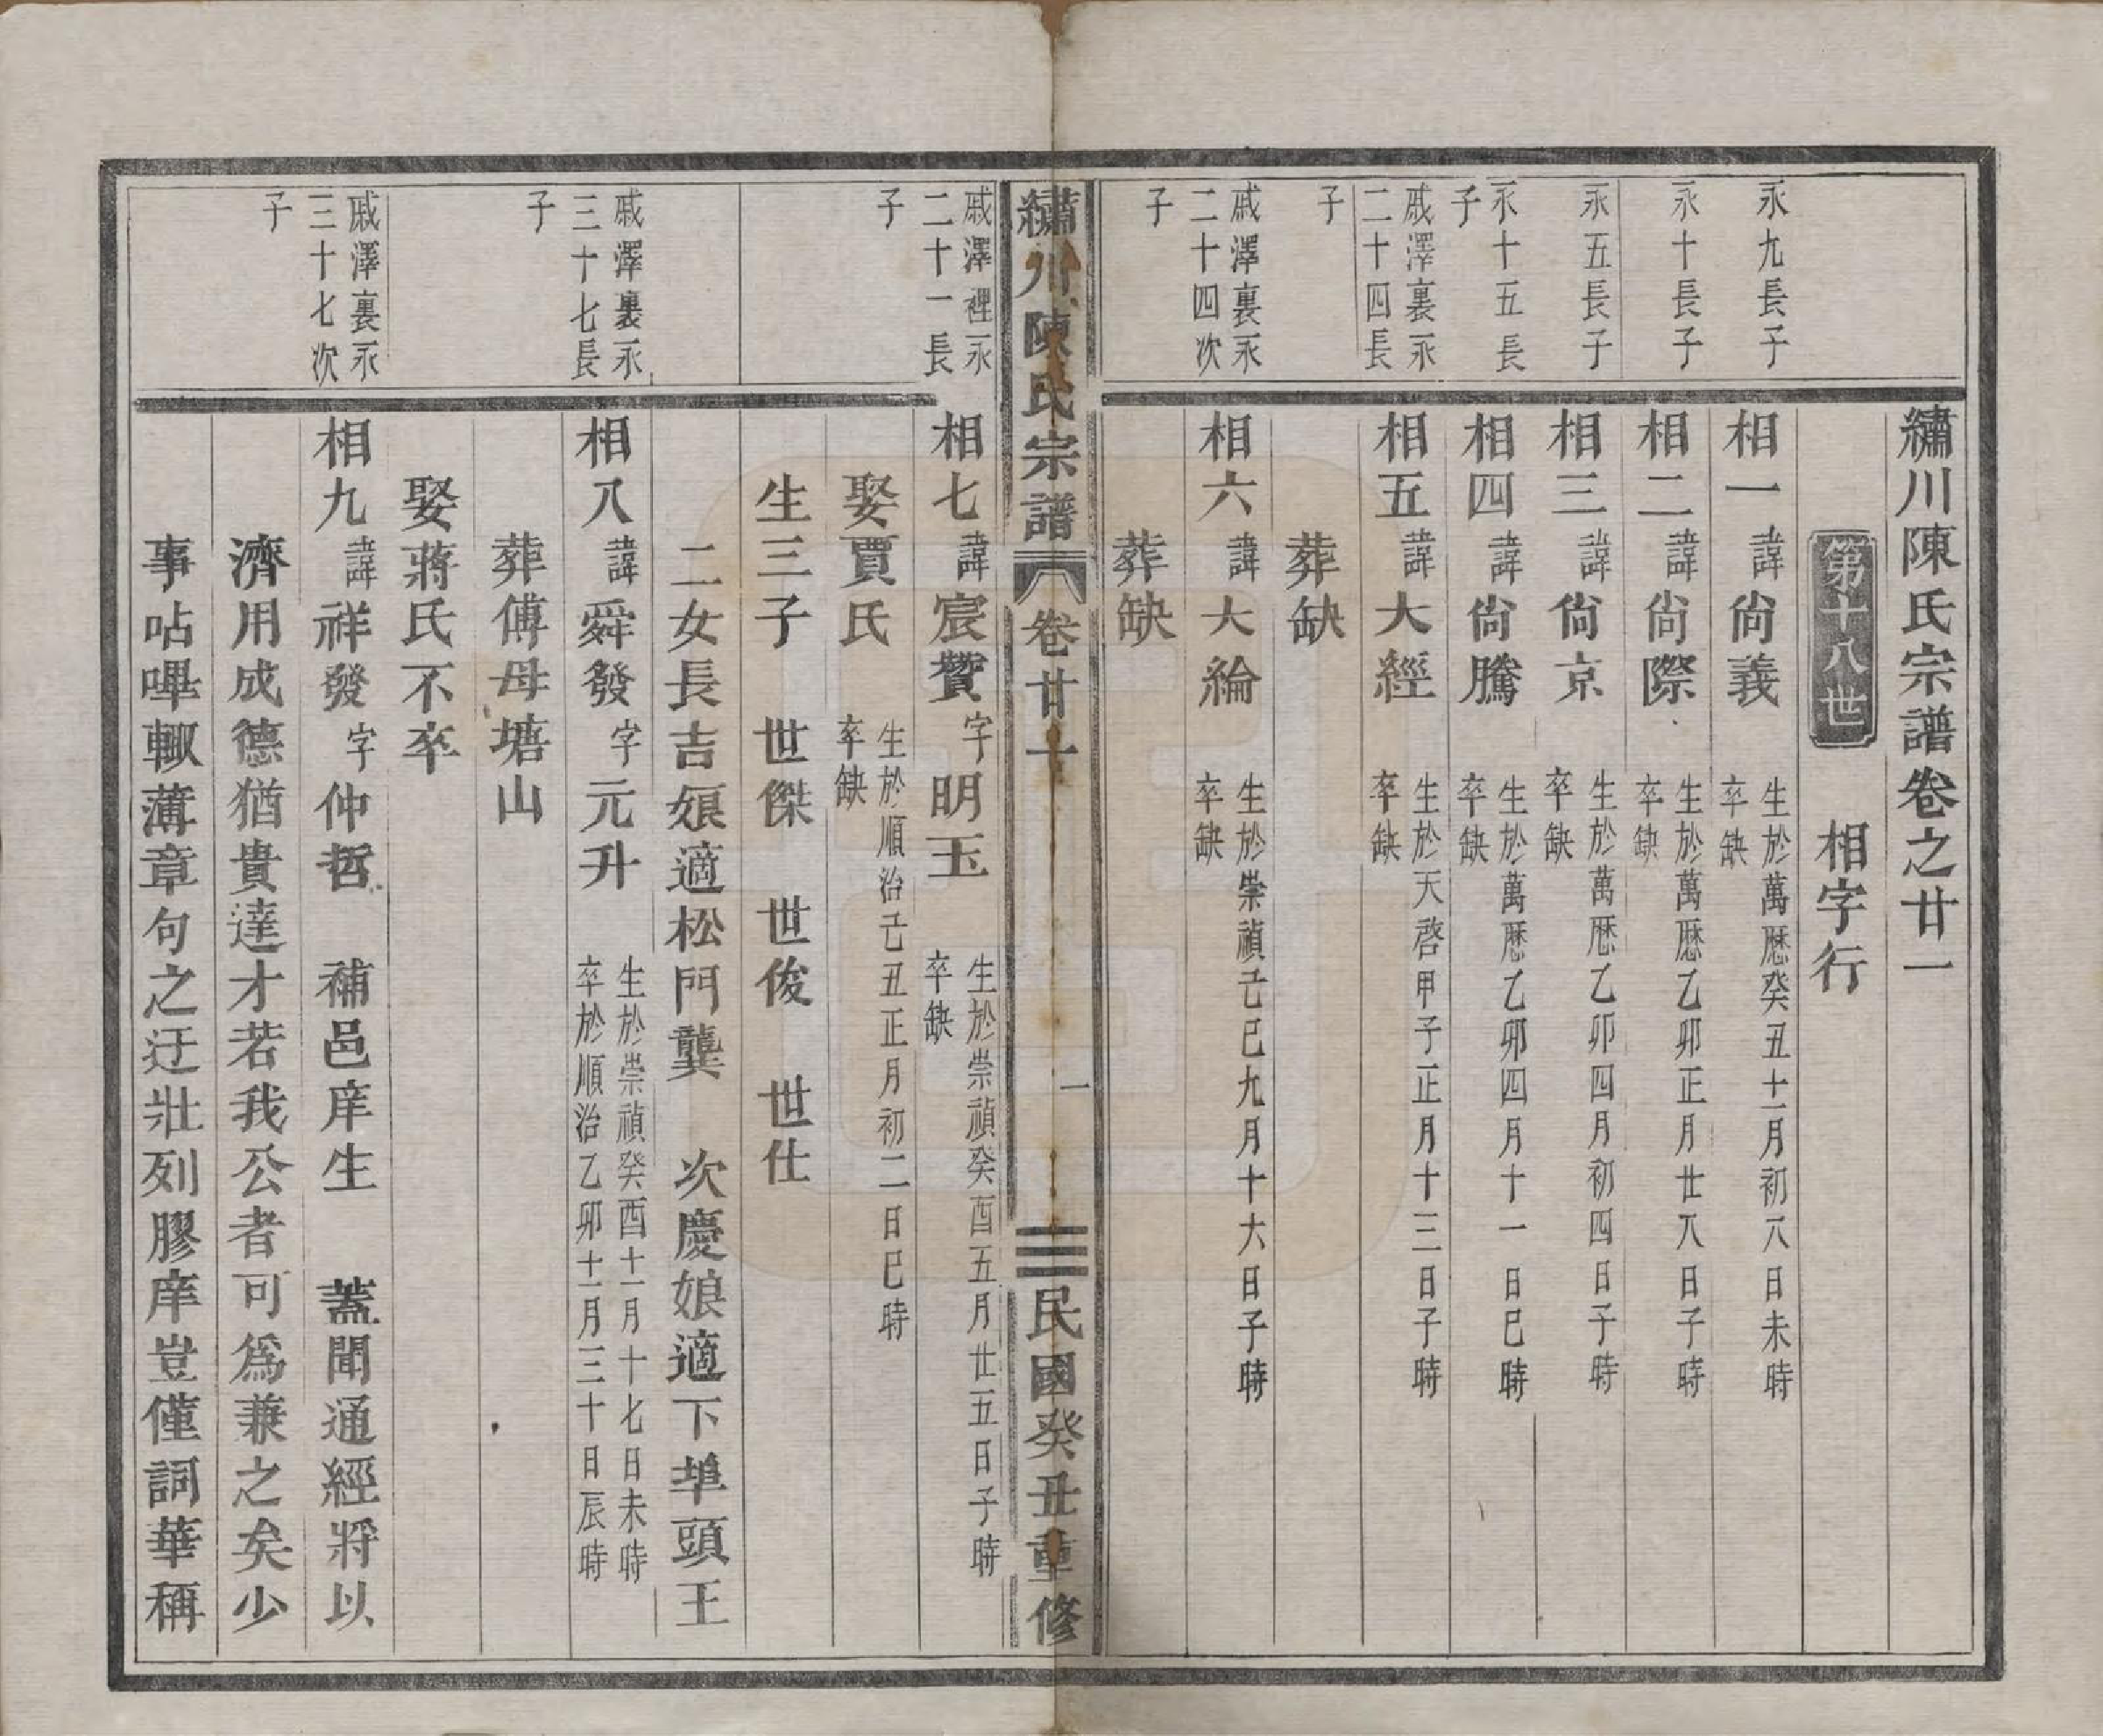 繡川陳氏宗譜卷之廿一
第十八世
相字行
永九長子
相一諱尙義
生於萬曆癸丑十一月初八日未時
卒缺
永十長子
相二諱尙際
生於萬曆乙卯正月廿八日子時
卒缺
永五長子
相三諱尙京
生於萬曆乙卯四月初四日子時
卒缺
永十五長
子
相四諱尙騰
生於萬曆乙卯四月十一日巳時
卒缺
戚澤裏永
二十四長
子
相五諱大經
生於天啓甲子正月十三日子時
卒缺
葬缺
戚澤裏永
二十四次
子
相六諱大綸
生於崇禎己巳九月十六日子時
卒缺
葬缺
繡川陳氏宗譜
卷廿一
一
民國癸丑重修
戚澤裡永
二十一長
子
相七諱宸贊字明玉
生於崇禎癸酉五月廿五日子時
卒缺
娶賈氏
生於順治己丑正月初二日巳時
卒缺
生三子 世傑 世俊 世仕
二女長吉娘適松門龔 次慶娘適下埠頭王
戚澤裏永
三十七長
子
相八諱舜發字元升
生於崇禎癸酉十一月十七日未時
卒於順治乙卯十一月三十日辰時
葬傅母塘山
娶蔣氏不卒
戚澤裏永
三十七次
子
相九諱祥發字仲哲 補邑庠生 蓋聞通經將以
濟用成德猶貴達才若我公者可爲兼之矣少
事呫嗶輙薄章句之迂壯列膠庠豈僅詞華稱